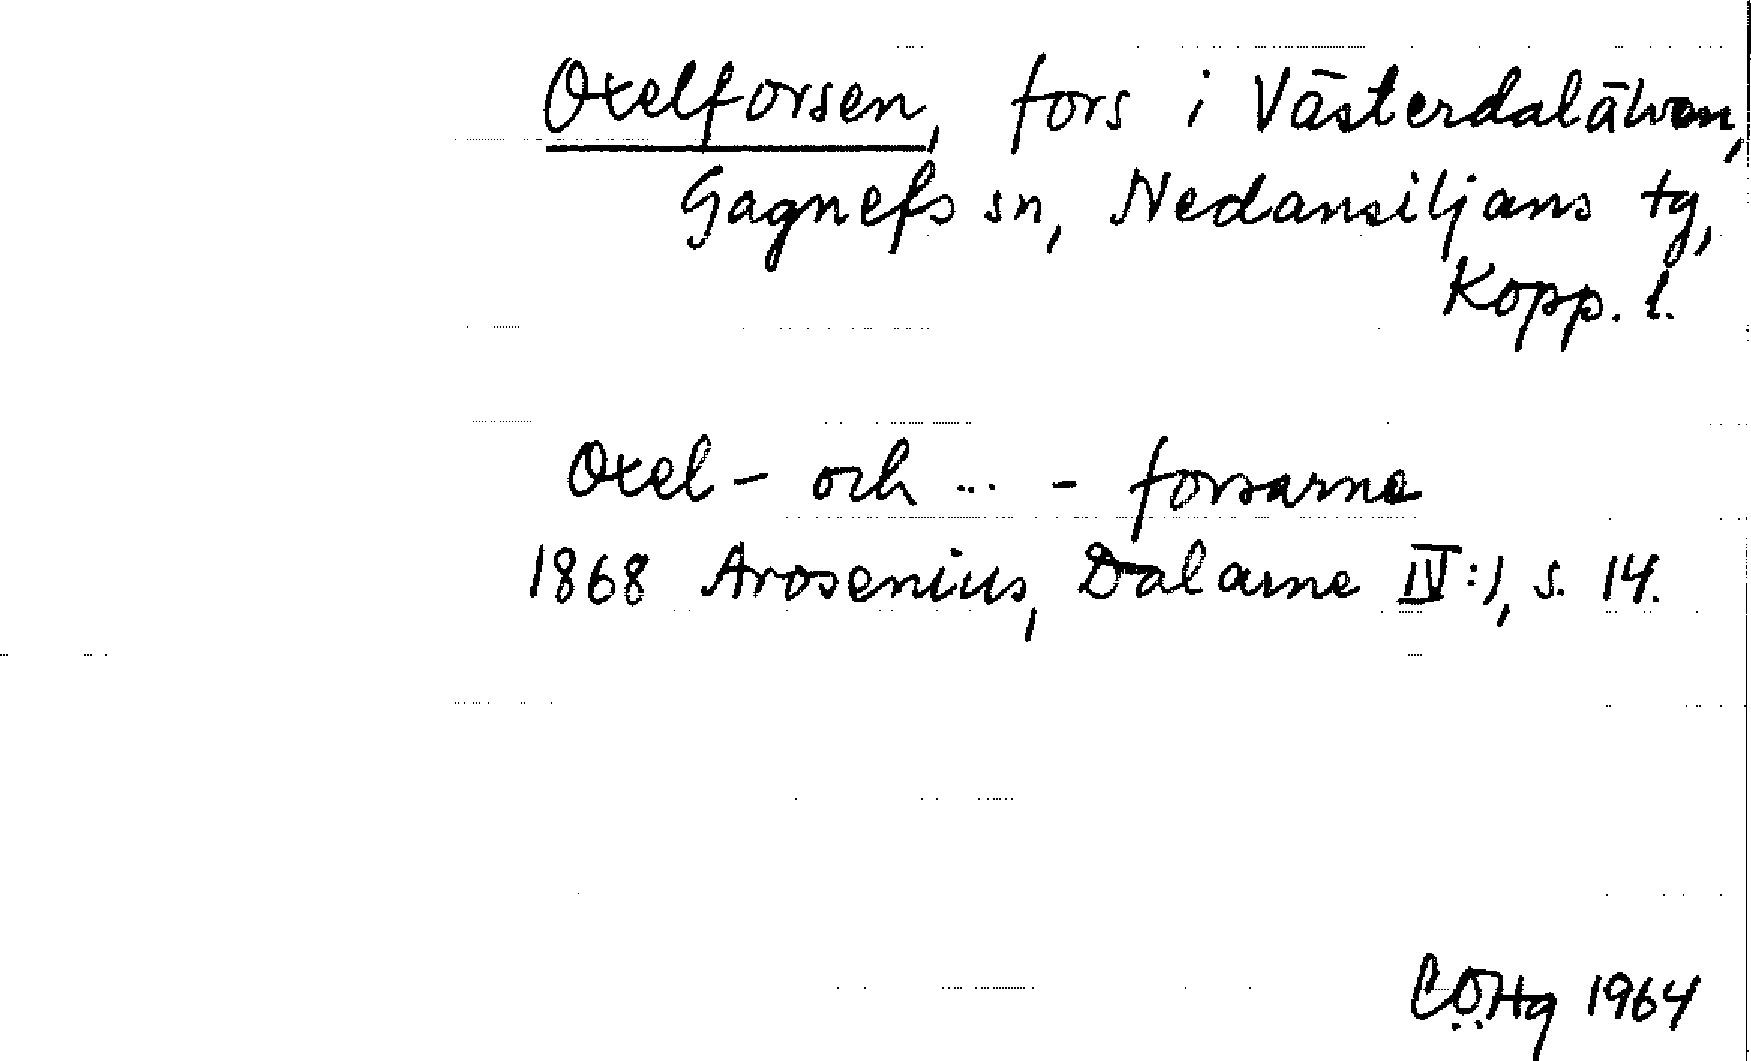 Oxelforsen, fors i Västerdalälven,
Gagnefs sn, Nedansiljans tg,
Kopp. l.
Oxel- och ... - forsarne
1868 Arosenius, Dalarne IV:1, s. 14.
1964